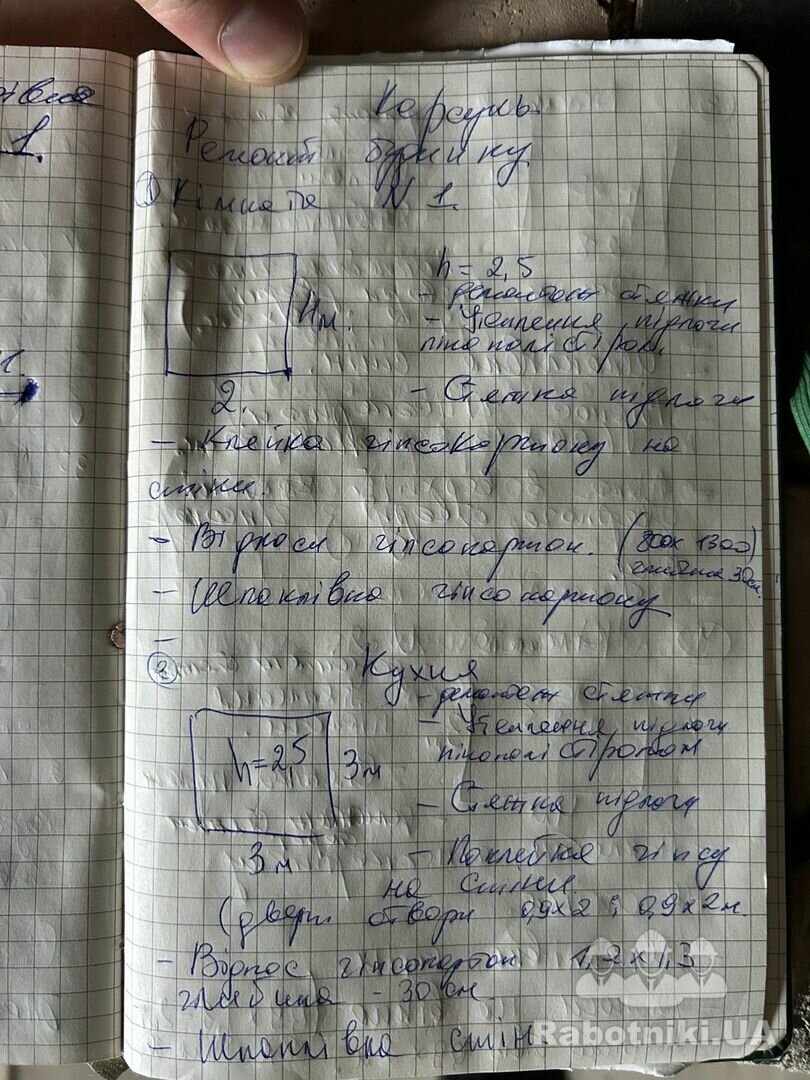 івля
1.
Корсунь
Ремонт будинку
① Кімната N 1.
h = 2,5
- демонтаж стяжки
4м.
- Утеплення підлоги
пінополістірол.
2.
- Стяжка підлоги
- Клейка гіпсокартону на
стіни.
- Відкоси гіпсокартон. (800х 1300)
глибина 30см.
- Шпаклівка гіпсокартону
-
② Кухня
- демонтаж стяжки
- Утеплення підлоги
пінополістіролом
h=2,5
3м
- Стяжка підлоги
3м
- Поклейка гіпсу
на стіни.
(двери отвори 0,9х2 ; 0,9х2м
- Відкос гіпсокартон 1,7х1,3
глибина - 30см.
- Шпаклівка стін
Rabotniki.UA